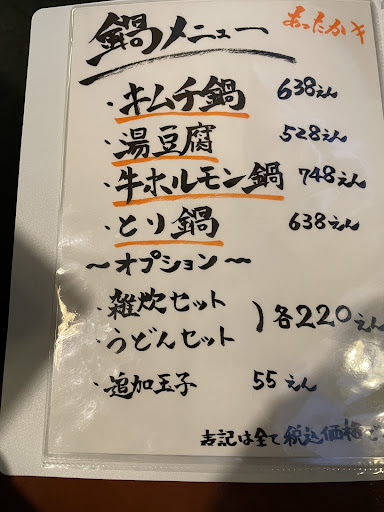 鍋メニュー
あったか
・キムチ鍋 638えん
・湯豆腐 528えん
・牛ホルモン鍋 748えん
・とり鍋 638えん
〜オプション〜
・雑炊セット
・うどんセット
)各220えん
・追加玉子 55えん
表記は全て税込価格で